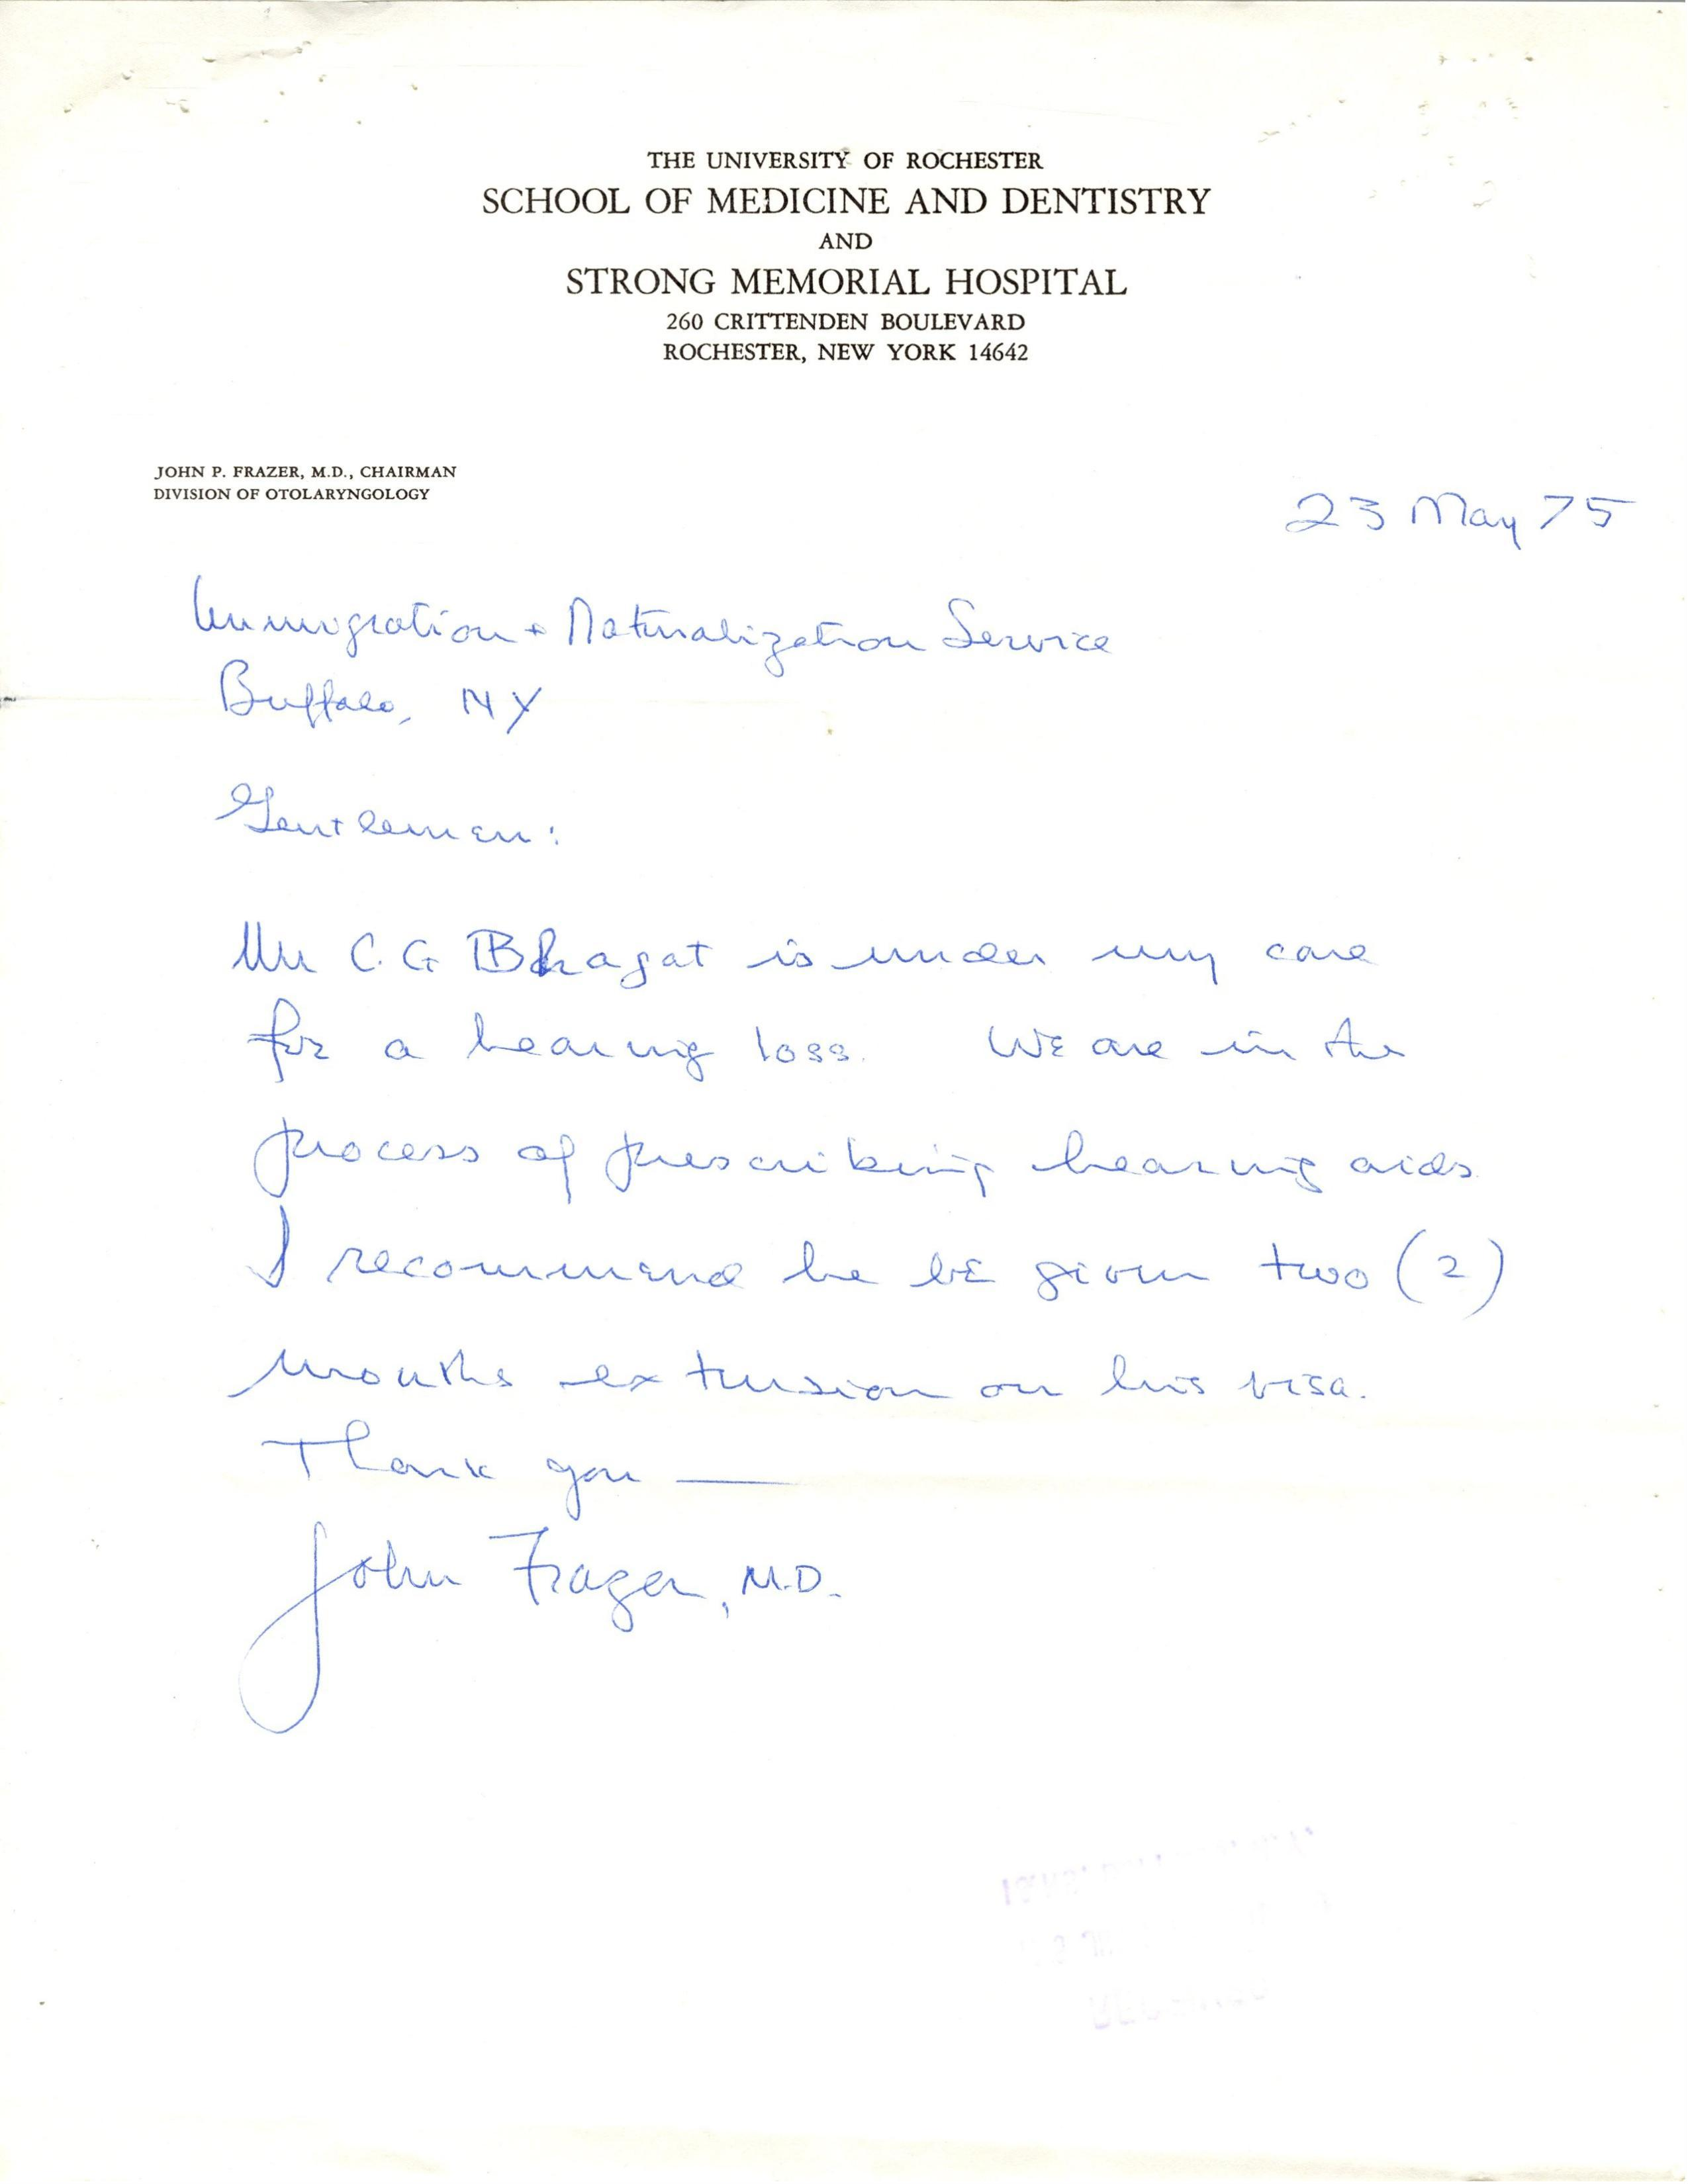 THE UNIVERSITY OF ROCHESTER
SCHOOL OF MEDICINE AND DENTISTRY
AND
STRONG MEMORIAL HOSPITAL
260 CRITTENDEN BOULEVARD
ROCHESTER, NEW YORK 14642
JOHN P. FRAZER, M.D., CHAIRMAN
DIVISION OF OTOLARYNGOLOGY
23 May 75
Immigration + Naturalization Service
Buffalo, NY
Gentlemen:
Mr C. G Bhagat is under my care
for a hearing loss. We are in the
process of prescribing hearing aids
I recommend he be given two (2)
months extension on his visa.
Thank you —
John Frazer, M.D.